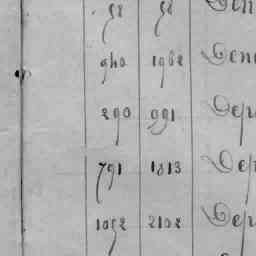 58 58
940 1962 Den
290 991 Dep
791 1813 Dep
1052 2102 Dep